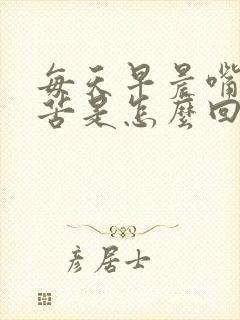 每天早晨嘴
苦是怎麼回
彦居士